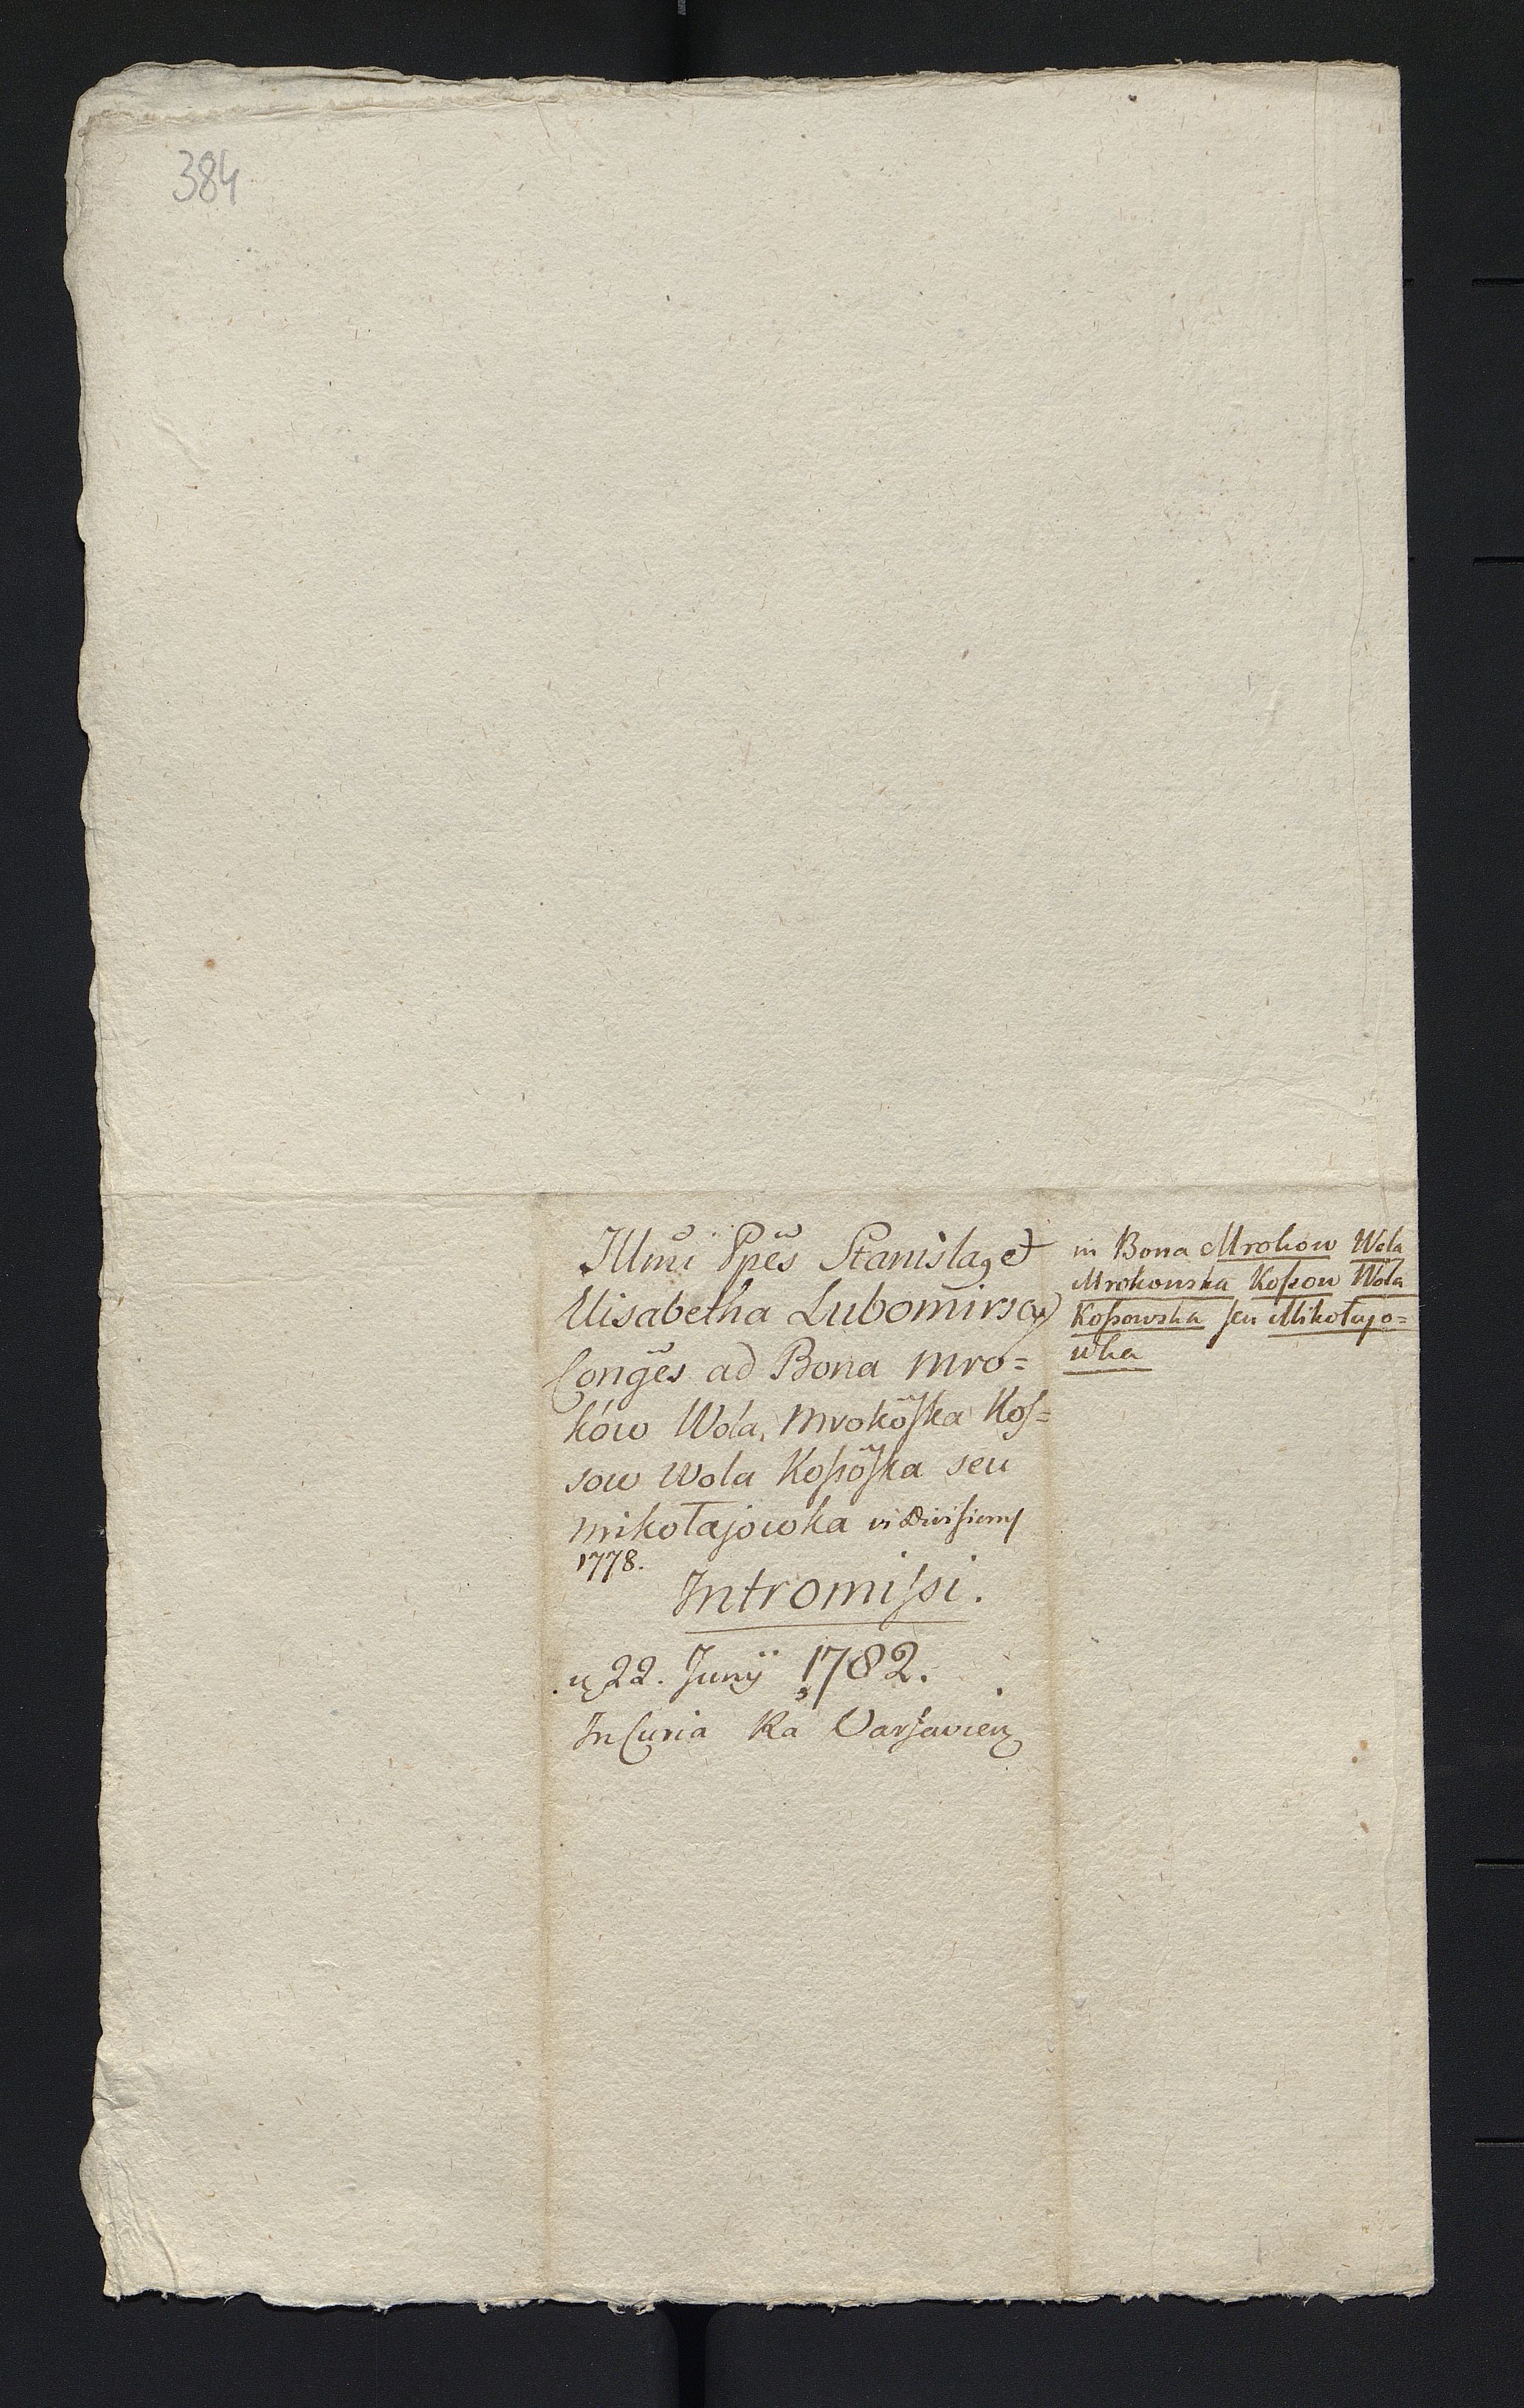 384
Illmi Ppes Stanisla9 et
Elisabetha Lubomirscy
Conges ad Bona Mro=
ków Wola, Mrokoska Kos=
sow Wola Kossoska seu
Mikołajowka vi Divisionis
1778.
Intromissi.
22. Junij 1782.
In Curia Ra Varsavien
in Bona Mrokow Wola
Mrokowska Kossow Wola
Kossowska seu Mikołajo=
wka